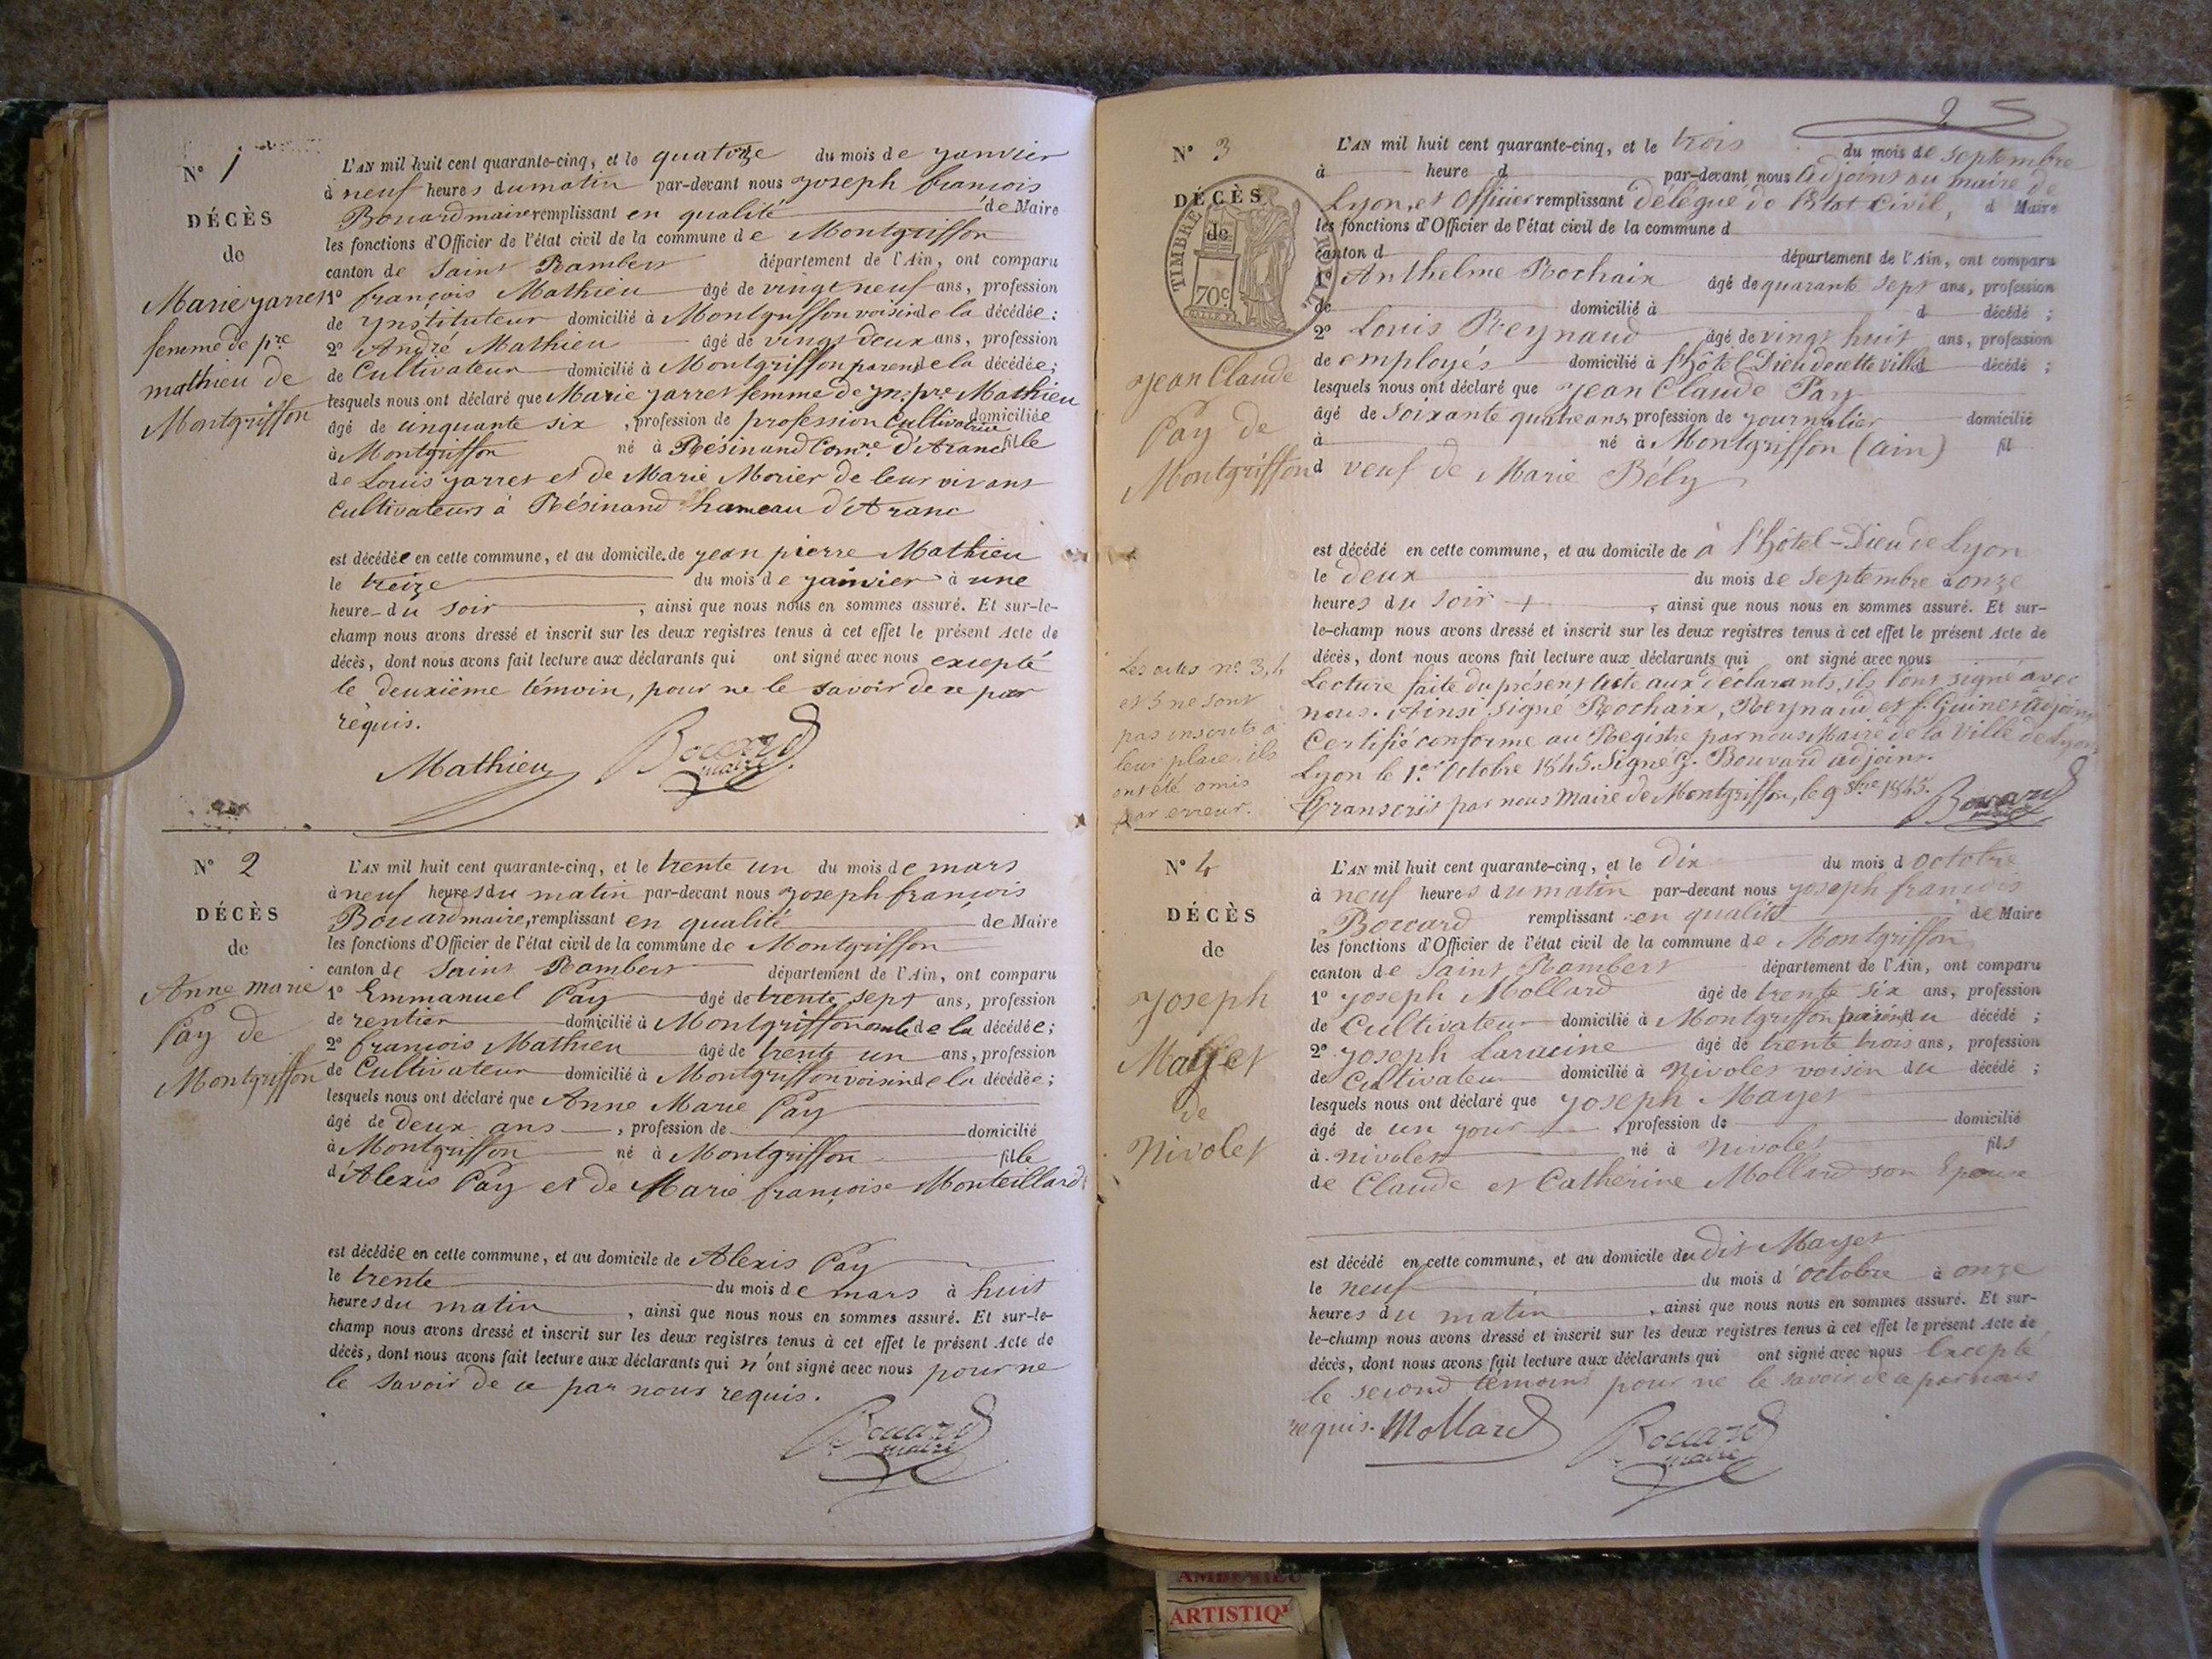 N° 1
DÉCÈS
de
Marie Jarret
femme de pre
mathieu de
Montgriffon
L'AN mil huit cent quarante-cinq, et le quatorze du mois de janvier
à neuf heures du matin par-devant nous joseph françois
Bouard maire remplissant en qualité de Maire
les fonctions d'Officier de l'état civil de la commune de Montgriffon
canton de Saint Rambert département de l'Ain, ont comparu
1° françois Mathieu âgé de vingt neuf ans, profession
de Instituteur domicilié à Montgriffon voisin de la décédée :
2° André Mathieu âgé de vingt deux ans, profession
de Cultivateur domicilié à Montgriffon parent de la décédée ;
lesquels nous ont déclaré que Marie Jarret femme de Jn pre Mathieu
âgé de cinquante six , profession de profession Cultivatrice domiciliée
à Montgriffon né à Résinand Comne d'Aranc fille
de Louis Jarret et de Marie Morier de leur vivant
Cultivateurs à Résinand hameau d'Aranc
est décédée en cette commune, et au domicile de jean pierre Mathieu
le treize du mois de janvier à une
heure du soir , ainsi que nous nous en sommes assuré. Et sur-le-
champ nous avons dressé et inscrit sur les deux registres tenus à cet effet le présent Acte de
décès, dont nous avons fait lecture aux déclarants qui ont signé avec nous excepté
le deuxième témoin, pour ne le savoir de ce par
réquis.
Mathieu Bouard
maire
N° 2
DÉCÈS
de
Anne marie
Pay de
Montgriffon
L'AN mil huit cent quarante-cinq, et le trente un du mois de mars
à neuf heures du matin par-devant nous joseph françois
Bouard maire, remplissant en qualité de Maire
les fonctions d'Officier de l'état civil de la commune de Montgriffon
canton de Saint Rambert département de l'Ain, ont comparu
1° Emmanuel Pay âgé de trente sept ans, profession
de rentier domicilié à Montgriffon oncle de la décédée ;
2° françois Mathieu âgé de trente un ans, profession
de Cultivateur domicilié à Montgriffon voisin de la décédée ;
lesquels nous ont déclaré que Anne Marie Pay
âgé de deux ans , profession de domicilié
à Montgriffon né à Montgriffon fille
d'Alexis Pay et de Marie françoise Monteillard
est décédée en cette commune, et au domicile de Alexis Pay
le trente du mois de mars à huit
heures du matin , ainsi que nous nous en sommes assuré. Et sur-le-
champ nous avons dressé et inscrit sur les deux registres tenus à cet effet le présent Acte de
décès, dont nous avons fait lecture aux déclarants qui n'ont signé avec nous pour ne
le savoir de ce par nous requis.
Bouard
maire
N° 3
DÉCÈS
de
TIMBRE
70c
Jean Claude
Pay de
Montgriffon
Les actes no 3, 4
et 5 ne sont
pas inscrits à
leur place, ils
ont été omis
par erreur.
L'AN mil huit cent quarante-cinq, et le trois du mois de septembre
à heure d par-devant nous adjoint au maire de
Lyon, et Officier remplissant délégué de l'Etat Civil, d Maire
les fonctions d'Officier de l'état civil de la commune d
canton d département de l'Ain, ont comparu
1° Anthelme Rochaix âgé de quarante sept ans, profession
de domicilié à d décédé ;
2° Louis Reynaud âgé de vingt huit ans, profession
de employés domicilié à l'hôtel Dieu de cette ville d décédé ;
lesquels nous ont déclaré que Jean Claude Pay
âgé de soixante quatre ans profession de journalier domicilié
à né à Montgriffon (ain) fil
d veuf de Marie Bély
est décédé en cette commune, et au domicile de à l'hôtel-Dieu de Lyon
le deux du mois de septembre à onze
heures du soir , ainsi que nous nous en sommes assuré. Et sur-
le-champ nous avons dressé et inscrit sur les deux registres tenus à cet effet le présent Acte de
décès, dont nous avons fait lecture aux déclarants qui ont signé avec nous
Lecture faite du présent Acte aux déclarants, ils l'ont signé avec
nous. Ainsi signé Rochaix, Reynaud et f. Guinet adjoint
Certifié conforme au Registre par nous Maire de la Ville de Lyon,
Lyon le 1er Octobre 1845. Signé J. Bouvard adjoint.
Transcrit par nous Maire de Montgriffon, le 9 8bre 1845. Bouard
maire
N° 4
DÉCÈS
de
Joseph
Mayet
de
Nivolet
L'AN mil huit cent quarante-cinq, et le dix du mois d octobre
à neuf heures du matin par-devant nous joseph françois
Bouard remplissant en qualité de Maire
les fonctions d'Officier de l'état civil de la commune de Montgriffon
canton de Saint Rambert département de l'Ain, ont comparu
1° joseph Mollard âgé de trente six ans, profession
de Cultivateur domicilié à Montgriffon du décédé ;
2° joseph Laracine âgé de trente trois ans, profession
de Cultivateur domicilié à Nivolet voisin du décédé ;
lesquels nous ont déclaré que joseph Mayet
âgé de un jour , profession de domicilié
à nivolet né à Nivolet fils
de Claude et Catherine Mollard son Epouse
est décédé en cette commune, et au domicile du dit Mayet
le neuf du mois d'octobre à onze
heures du matin , ainsi que nous nous en sommes assuré. Et sur-
le-champ nous avons dressé et inscrit sur les deux registres tenus à cet effet le présent Acte de
décès, dont nous avons fait lecture aux déclarants qui ont signé avec nous Excepté
le second témoins pour ne le savoir de ce par nous
requis. Mollard Bouard
maire
ARTISTIQU